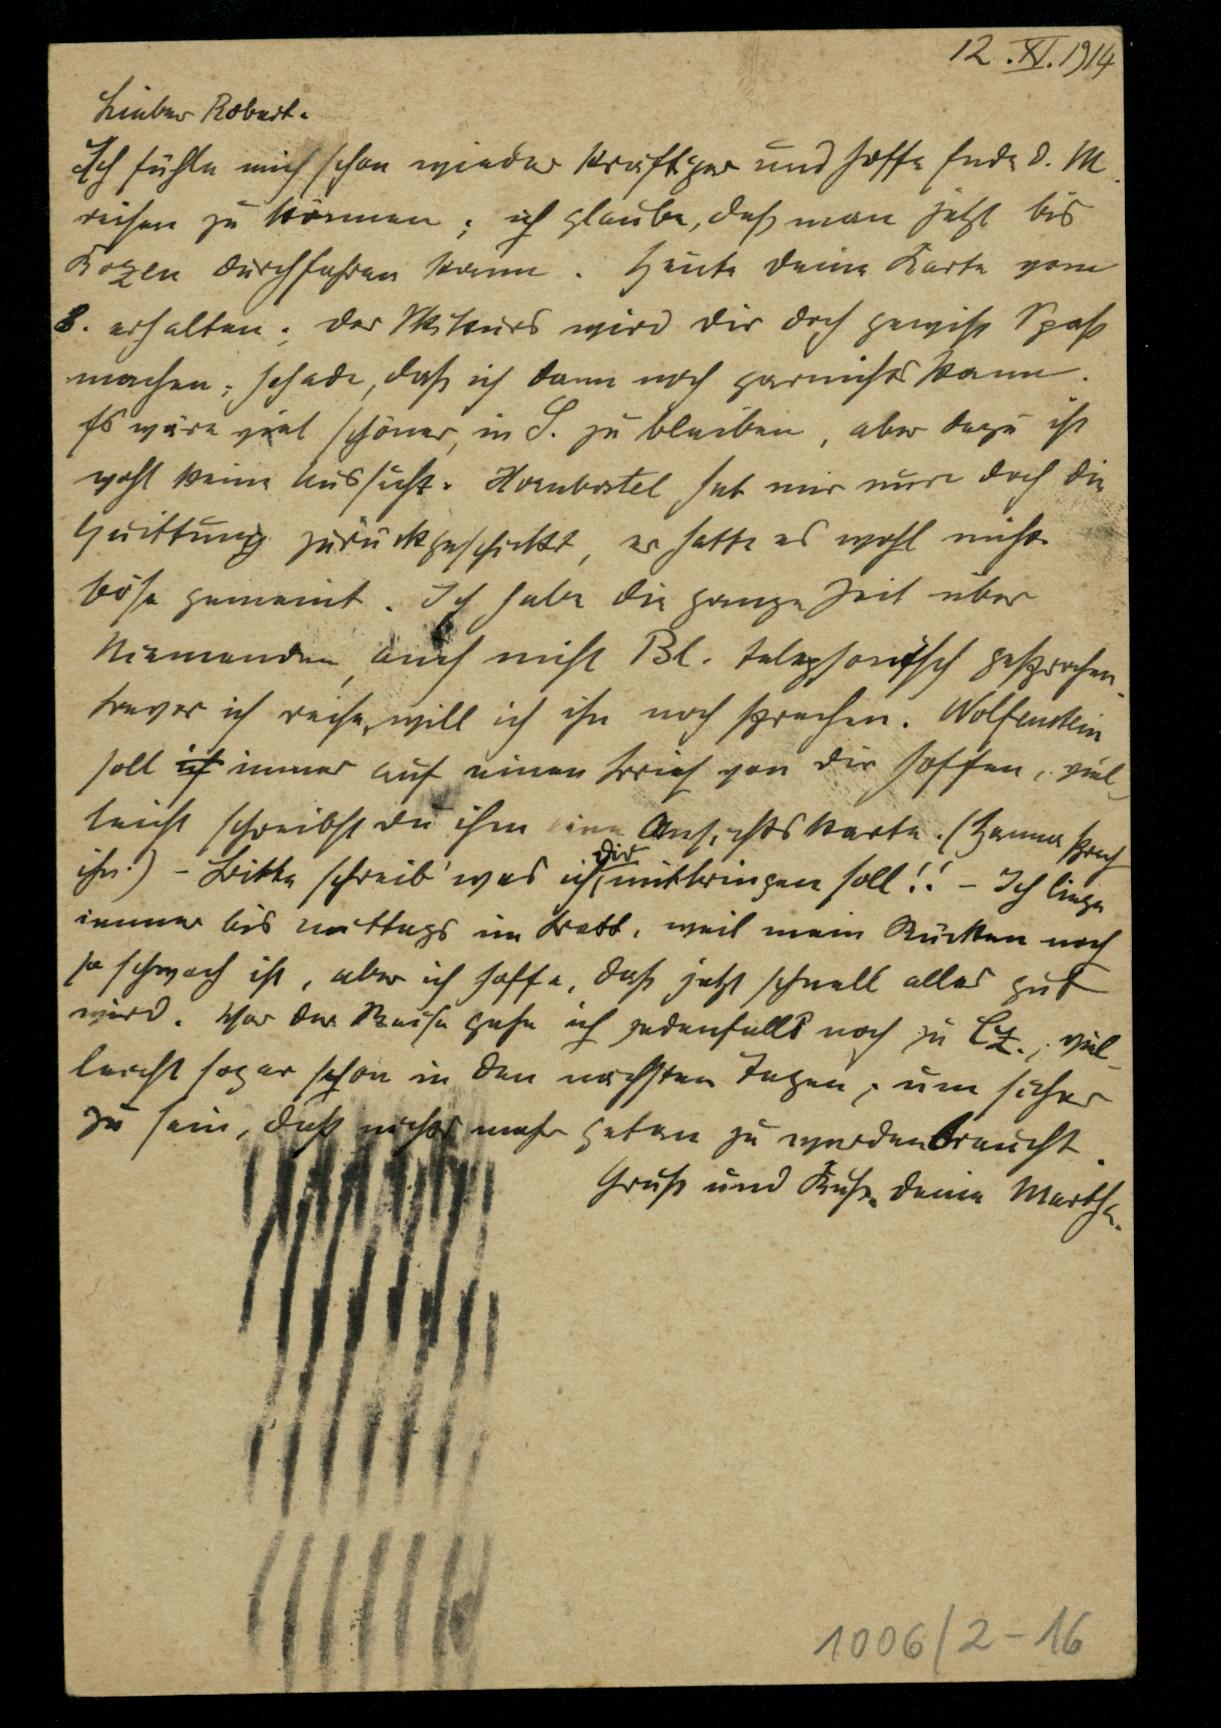 12.XI.1914
Lieber Robert.
Ich fühle mich schon wieder kräftiger und hoffe Ende d. M.
reisen zu können; ich glaube, daß man jetzt bis
Bozen durchfahren kann. Heute deine Karte vom
8. erhalten; der Skikurs wird dir doch gewiß Spaß
machen; schade, daß ich dann noch garnichts kann.
Es wäre viel schöner, in S. zu bleiben, aber dazu ist
wohl keine Aussicht. Hornbostel hat mir nun doch die
Quittung zurückgeschickt, er hatte es wohl nicht
böse gemeint. Ich habe die ganze Zeit über
Niemanden, auch nicht Bl. telephonisch gesprochen.
Bevor ich reise, will ich ihn noch sprechen. Wolfenstein
soll ich immer auf einen Brief von dir hoffen, viel-
leicht schreibst du ihm eine Ansichtskarte. (Hanna sprach
ihn.) - Bitte schreib' was ich dir mitbringen soll!! - Ich liege
immer bis mittags im Bett, weil mein Rücken noch
so schwach ist, aber ich hoffe, daß jetzt schnell alles gut
wird. Vor der Reise gehe ich jedenfalls noch zu Cz.; viel-
leicht sogar schon in den nächsten Tagen, um sicher
zu sein, daß nichts mehr getan zu werden braucht.
Gruß und Kuß. deine Martha.
1006/2-16